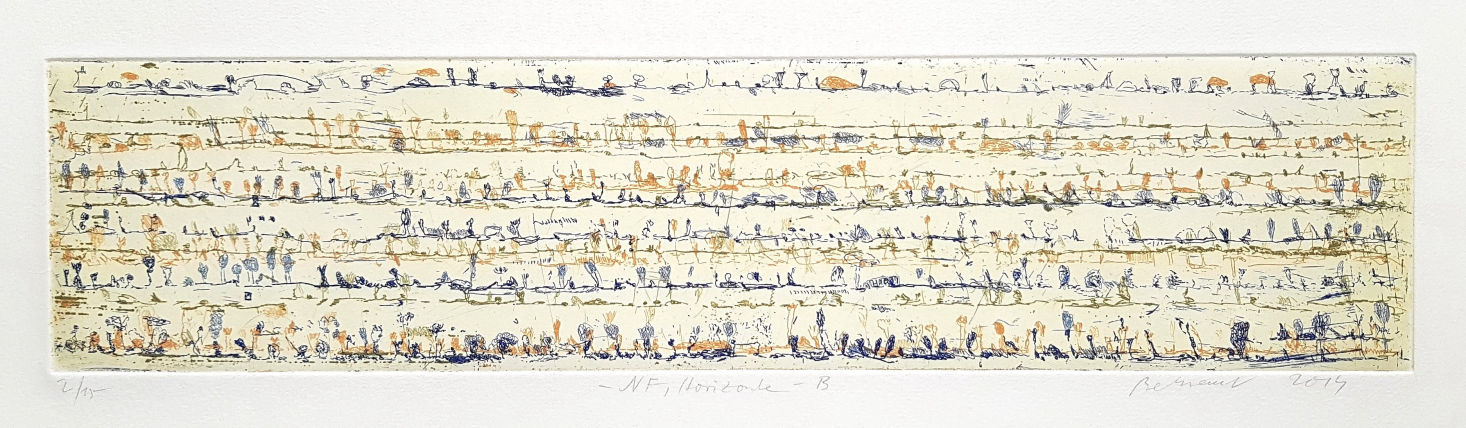 2/15 - NF, Horizonte - B 2014